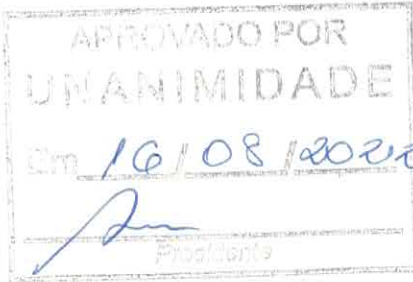 APROVADO POR
UNANIMIDADE
Em 16 / 08 / 2022
Presidente